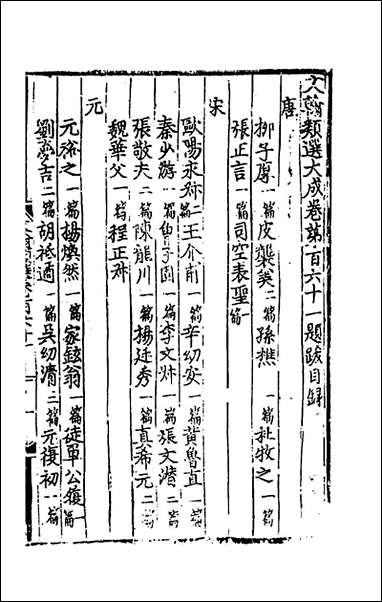 文翰類選大成卷第一百六十一題跋目錄
唐
柳子厚一篇皮襲美二篇孫樵一篇杜牧之一篇
張正言一篇司空表聖一篇
宋
歐陽永叔二王介甫一篇辛幼安一篇黃魯直一篇
秦少游一篇曾子固一篇李文叔一篇張文潛二篇
張敬夫二篇陳龍川一篇楊廷秀一篇真希元二篇
魏華父一篇程正叔
元
元裕之一篇楊煥然一篇家鉉翁一篇徒單公履一篇
劉夢吉二篇胡祗遹一篇吳幼清二篇元復初一篇